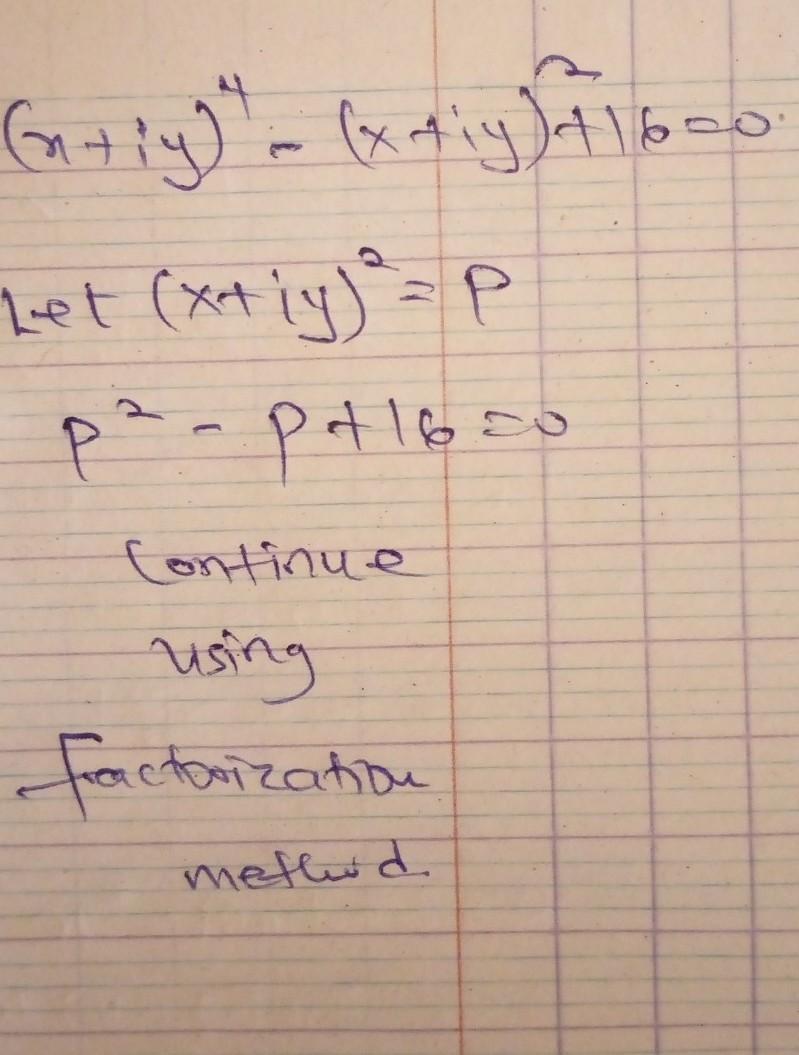 (x+iy)⁴ - (x+iy)²+16=0
Let (x+iy)² = P
P² - P+16=0
Continue
using
factorization
method